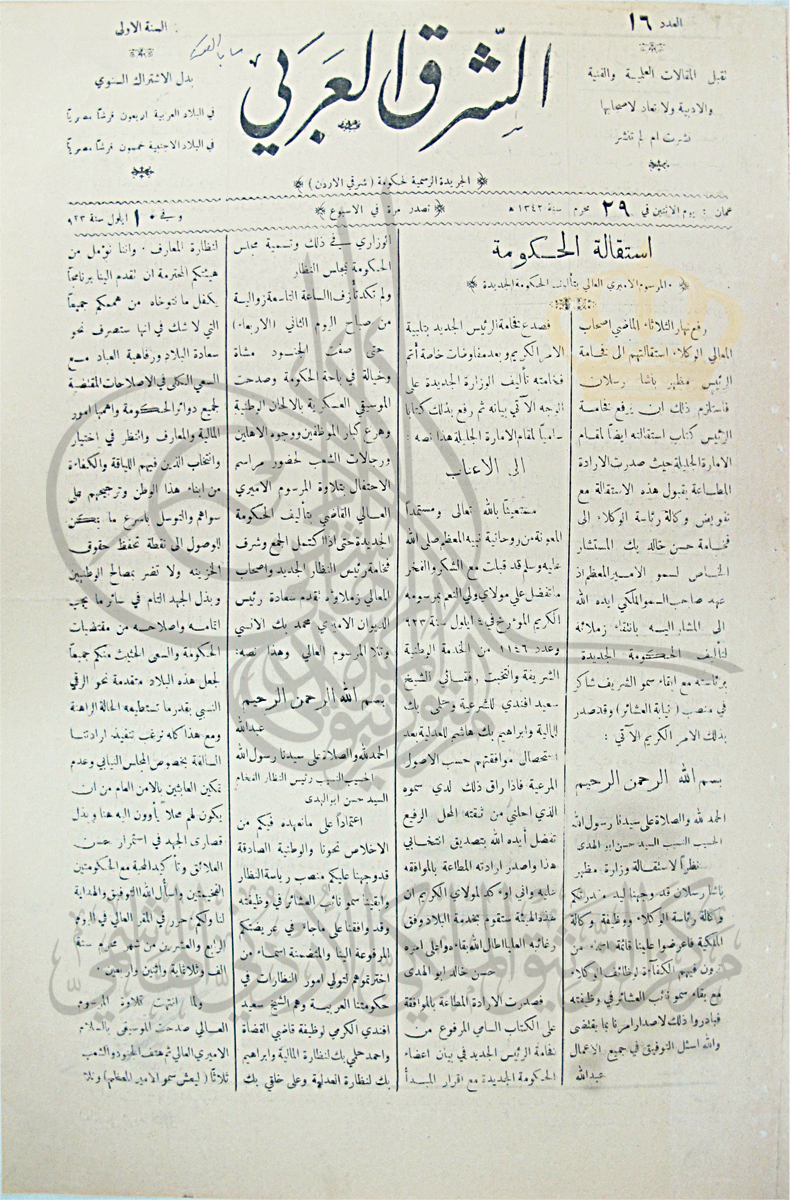 العدد ١٦
تقبل المقالات العلمية والفنية
والادبية ولا تعاد لاصحابها
نشرت ام لم تنشر
الشرق العربي
السنة الاولى
بدل الاشتراك السنوي
في البلاد العربية اربعون قرشا مصريا
في البلاد الاجنبية خمسون قرشا مصريا
الجريدة الرسمية لحكومة (شرقي الاردن)
عمان : يوم الاثنين في ٢٩ محرم سنة ١٣٤٢ هـ
تصدر مرة في الاسبوع
و في ١٠ ايلول سنة ٩٢٣
استقالة الحكومة
المرسوم الاميري العالي بتأليف الحكومة الجديدة
رفع نهار الثلاثاء الماضي اصحاب
المعالي الوكلاء استقالتهم الى فخامة
الرئيس مظهر باشا رسلان
فاستلزم ذلك ان يرفع فخامة
الرئيس كتاب استقالته ايضاً لمقام
الامارة الجليلة حيث صدرت الارادة
المطاعة بقبول هذه الاستقالة مع
تفويض وكالة رئاسة الوكلاء الى
فخامة حسن خالد بك المستشار
الخاص لسمو الامير المعظم اذ
عهد صاحب السمو الملكي ايده الله
الى المشار اليه بانتقاء زملائه
لتأليف الحكومة الجديدة
برئاسته مع ابقاء سمو الشريف شاكر
في منصب (نيابة العشائر) وقد صدر
بذلك الامر الكريم الآتي :
بسم الله الرحمن الرحيم
الحمد لله والصلاة على سيدنا رسول الله
الحسيب النسيب السيد حسن ابو الهدى
نظراً لاستقالة وزارة مظهر
باشا رسلان قد وجهنا
وكالة رئاسة الوكلاء ووظيفة وكالة
الملكية فاعرضوا علينا قائمة اسماء من
ترون فيهم الكفاءة لوظائف الوكلاء
مع بقاء سمو نائب العشائر في وظيفته
فبادروا ذلك لاصدار امرنا بما يقتضى
والله اسئل التوفيق في جميع الاعمال
عبدالله
فصدع فخامة الرئيس الجديد بتلبية
الامر الكريم وبعد مفاوضات خاصة أتم
فخامته تأليف الوزارة الجديدة على
الوجه الآتي بيانه ثم رفع بذلك كتابا
سامياً لمقام الامارة الجليلة هذا نصه :
الى الاعتاب
مستعيناً بالله تعالى ومستمداً
المعونة من روحانية نبيه المعظم صلى الله
عليه وسلم قد قبلت مع الشكر والفخر
ما تفضل علي مولاي ولي النعم بمرسومه
الكريم المؤرخ في ٤ ايلول سنة ٩٢٣
وعدد ١١٤٦ من الخدمة الوطنية
الشريفة وانتخبت رفقائي الشيخ
سعيد افندي للشرعية وحلمي بك
للمالية وابراهيم بك هاشم للعدلية بعد
استحصالي موافقتهم حسب الاصول
المرعية فاذا راق ذلك لدي سموه
الذي احلني من ثقته المحل الرفيع
تفضل أيده الله بتصديق انتخابي
هذا واصدر ارادته المطاعة بالموافقة
عليه واني اؤكد لمولاي الكريم ان
هذه الهيئة ستقوم بخدمة البلاد وفق
رغائبه العليا اطال الله بقاءه واعلى امره
حسن خالد ابو الهدى
فصدرت الارادة المطاعة بالموافقة
على الكتاب السامي المرفوع من
فخامة الرئيس الجديد في بيان اعضاء
الحكومة الجديدة مع اقرار المبدأ
الوزاري في ذلك وتسمية مجلس
الحكومة مجلس النظار
ولم تكد تأزف الساعة التاسعة زوالية
من صباح اليوم الثاني (الاربعاء)
حتى صفت الجنود مشاة
وخيالة في باحة الحكومة وصدحت
الموسيقى العسكرية بالالحان الوطنية
وهرع كبار الموظفين ووجوه الاهلين
ورجالات الشعب لحضور مراسم
الاحتفال بتلاوة المرسوم الاميري
العالي القاضي بتأليف الحكومة
الجديدة حتى اذا اكتمل الجمع وشرف
فخامة رئيس النظار الجديد واصحاب
المعالي زملاؤه تقدم سعادة رئيس
الديوان الاميري محمد بك الانسي
وتلا المرسوم العالي وهذا نصه :
بسم الله الرحمن الرحيم
عبدالله
الحمد لله والصلاة على سيدنا رسول الله
الحسيب النسيب رئيس النظار الفخام
السيد حسن ابو الهدى
اعتماداً على ما نعهده فيكم من
الاخلاص نحونا والوطنية الصادقة
قد وجهنا عليكم منصب رياسة النظار
وابقينا سمو نائب العشائر في وظيفته
وقد وافقنا على ما جاء في عريضتكم
المرفوعة الينا والمتضمنة اسماء من
اخترتموهم لتولي امور النظارات في
حكومتنا العربية وهم الشيخ سعيد
افندي الكرمي لوظيفة قاضي القضاة
واحمد حلمي بك لنظارة المالية وابراهيم
بك لنظارة العدلية وعلى خلقي بك
لنظارة المعارف . واننا نؤمل من
هيئتكم المحترمة ان تقدم الينا برنامجاً
يكفل ما نتوخاه من هممكم جميعاً
التي لا شك في انها ستصرف نحو
سعادة البلاد ورفاهية العباد مع
السعي الكلي في الاصلاحات المقتضية
لجميع دوائر الحكومة واهمها امور
المالية والمعارف والنظر في اختيار
وانتخاب الذين فيهم اللياقة والكفاءة
من ابناء هذا الوطن وترجيحهم على
سواهم والتوسل باسرع ما يمكن
للوصول الى نقطة تحفظ حقوق
الخزينة ولا تضر بمصالح الوطنيين
وبذل الجهد التام في سائر ما يجب
اتمامه واصلاحه من مقتضيات
الحكومة والسعى الحثيث منكم جميعاً
لجعل هذه البلاد متقدمة نحو الرقي
النسبي بقدر ما تستطيعه الحالة الراهنة
ومع هذا كله نرغب تنفيذ ارادتنا
السالفة بخصوص المجلس النيابي وعدم
تمكين العابثين بالامن العام من ان
يكون لهم محلاً يأوون اليه هنا وبذل
قصارى الجهد في استمرار حسن
العلائق وتأكيد المحبة مع الحكومتين
الفخيمتين واسأل الله التوفيق والهداية
لنا ولكم . حرر في المقر العالي في اليوم
الرابع والعشرين من شهر محرم سنة
الف وثلاثماية واثنين واربعين
ولما انتهت تلاوة المرسوم
العالي صدحت الموسيقى بالسلام
الاميري العالي ثم هتف الجنود والشعب
ثلاثاً (ليعش سمو الامير المعظم) وتلا